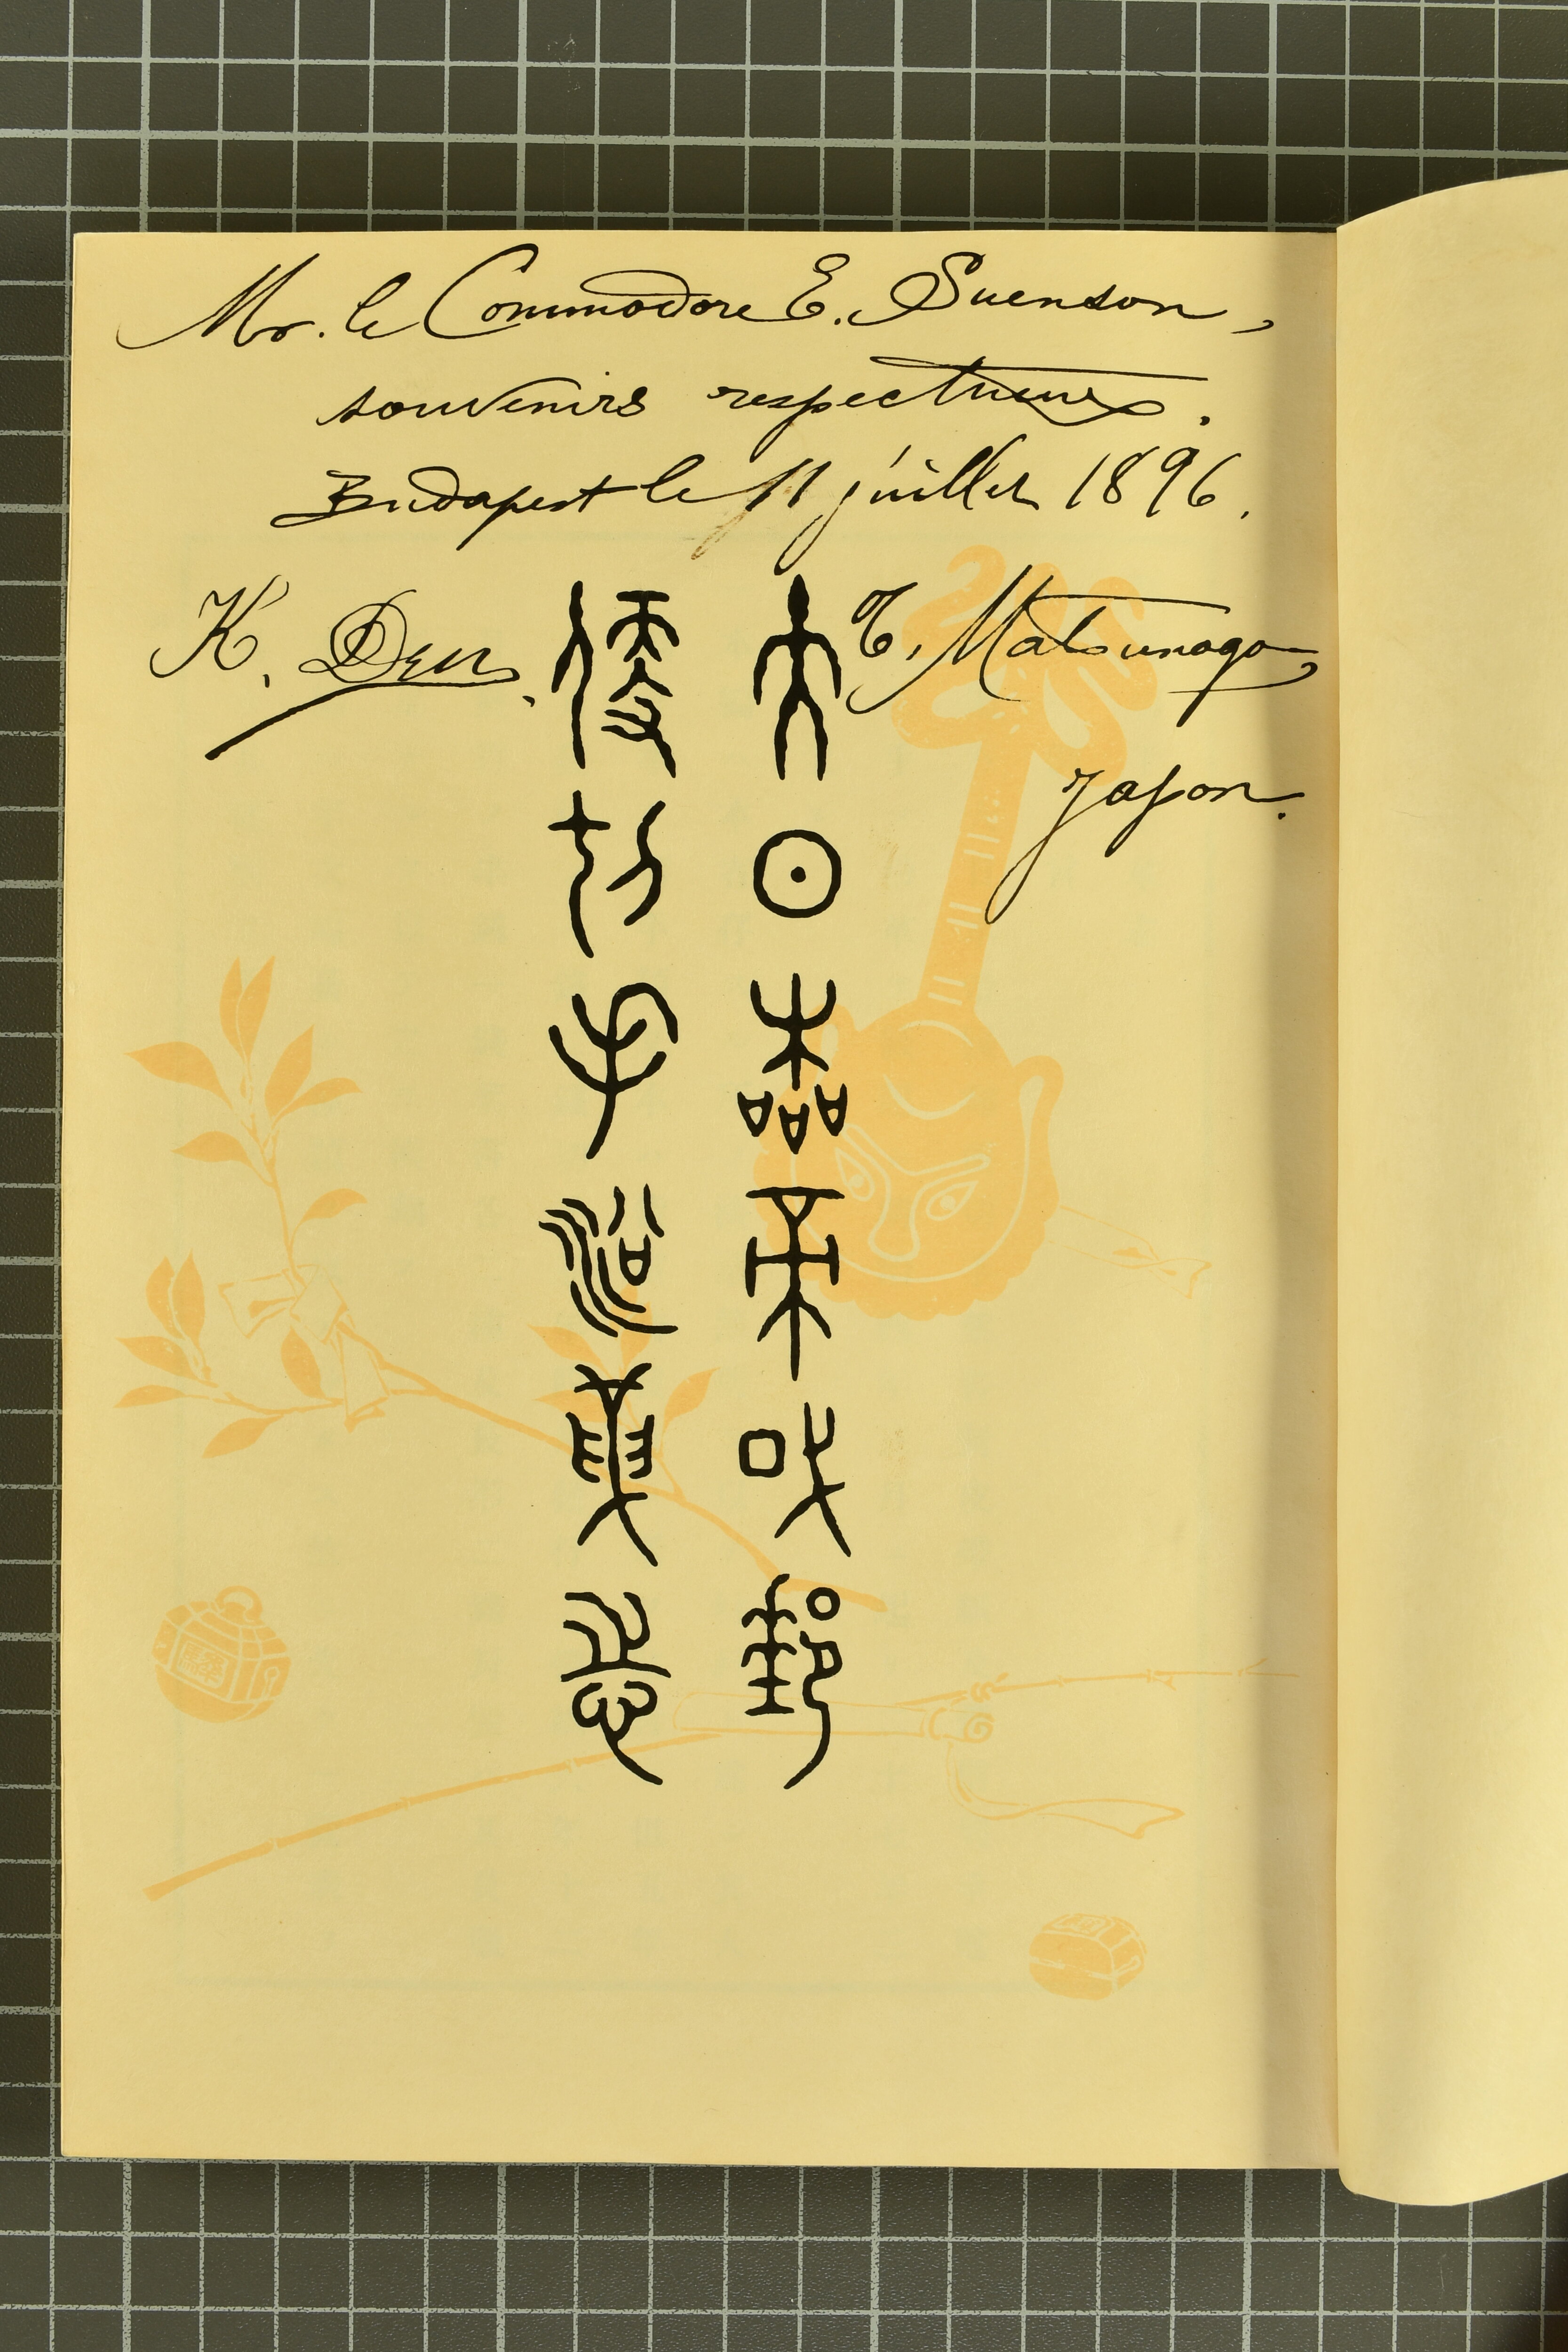 Mr. le Commodore E. Suenson,
souvenirs respectueux.
Budapest le 11 juillet 1896.
K. Den.
T. Matsunaga,
Japon.
大日本帝國郵
便切手沿革志